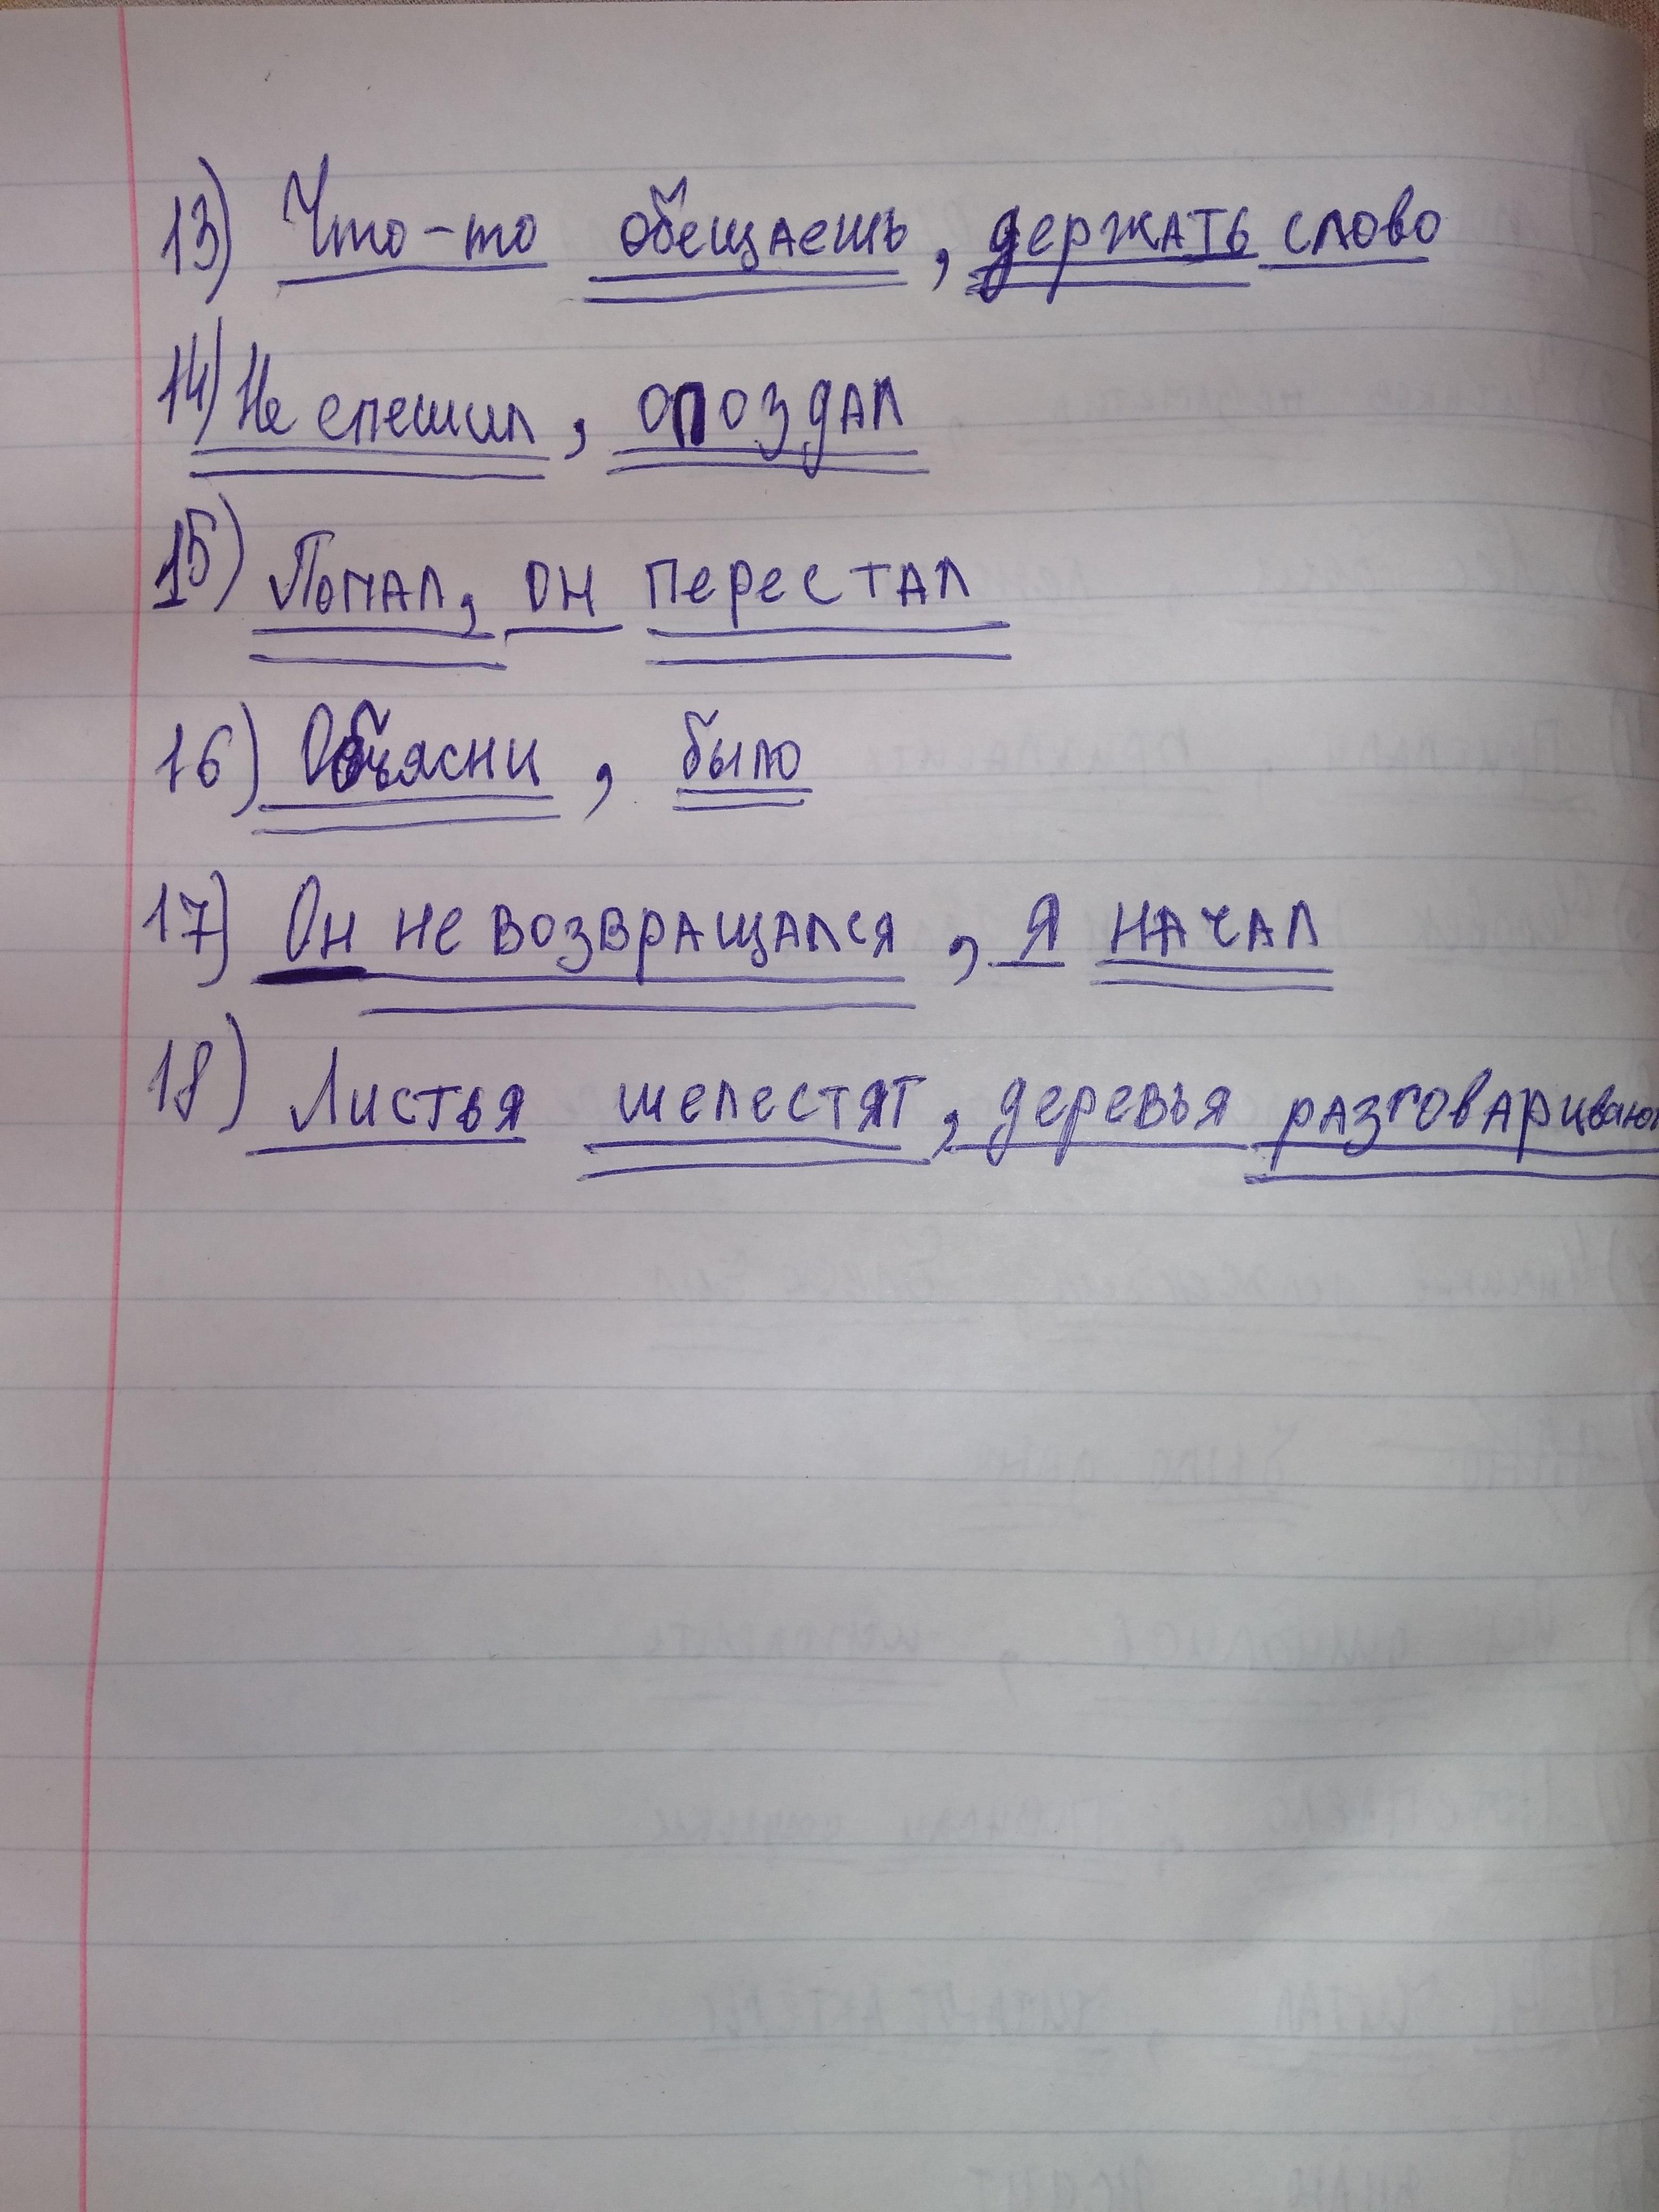 13) Что-то обещаешь, держать слово
14) Не спешил, опоздал
15) Попал, он перестал
16) Объясни, было
17) Он не возвращался, я начал
18) Листья шелестят, деревья разговаривают